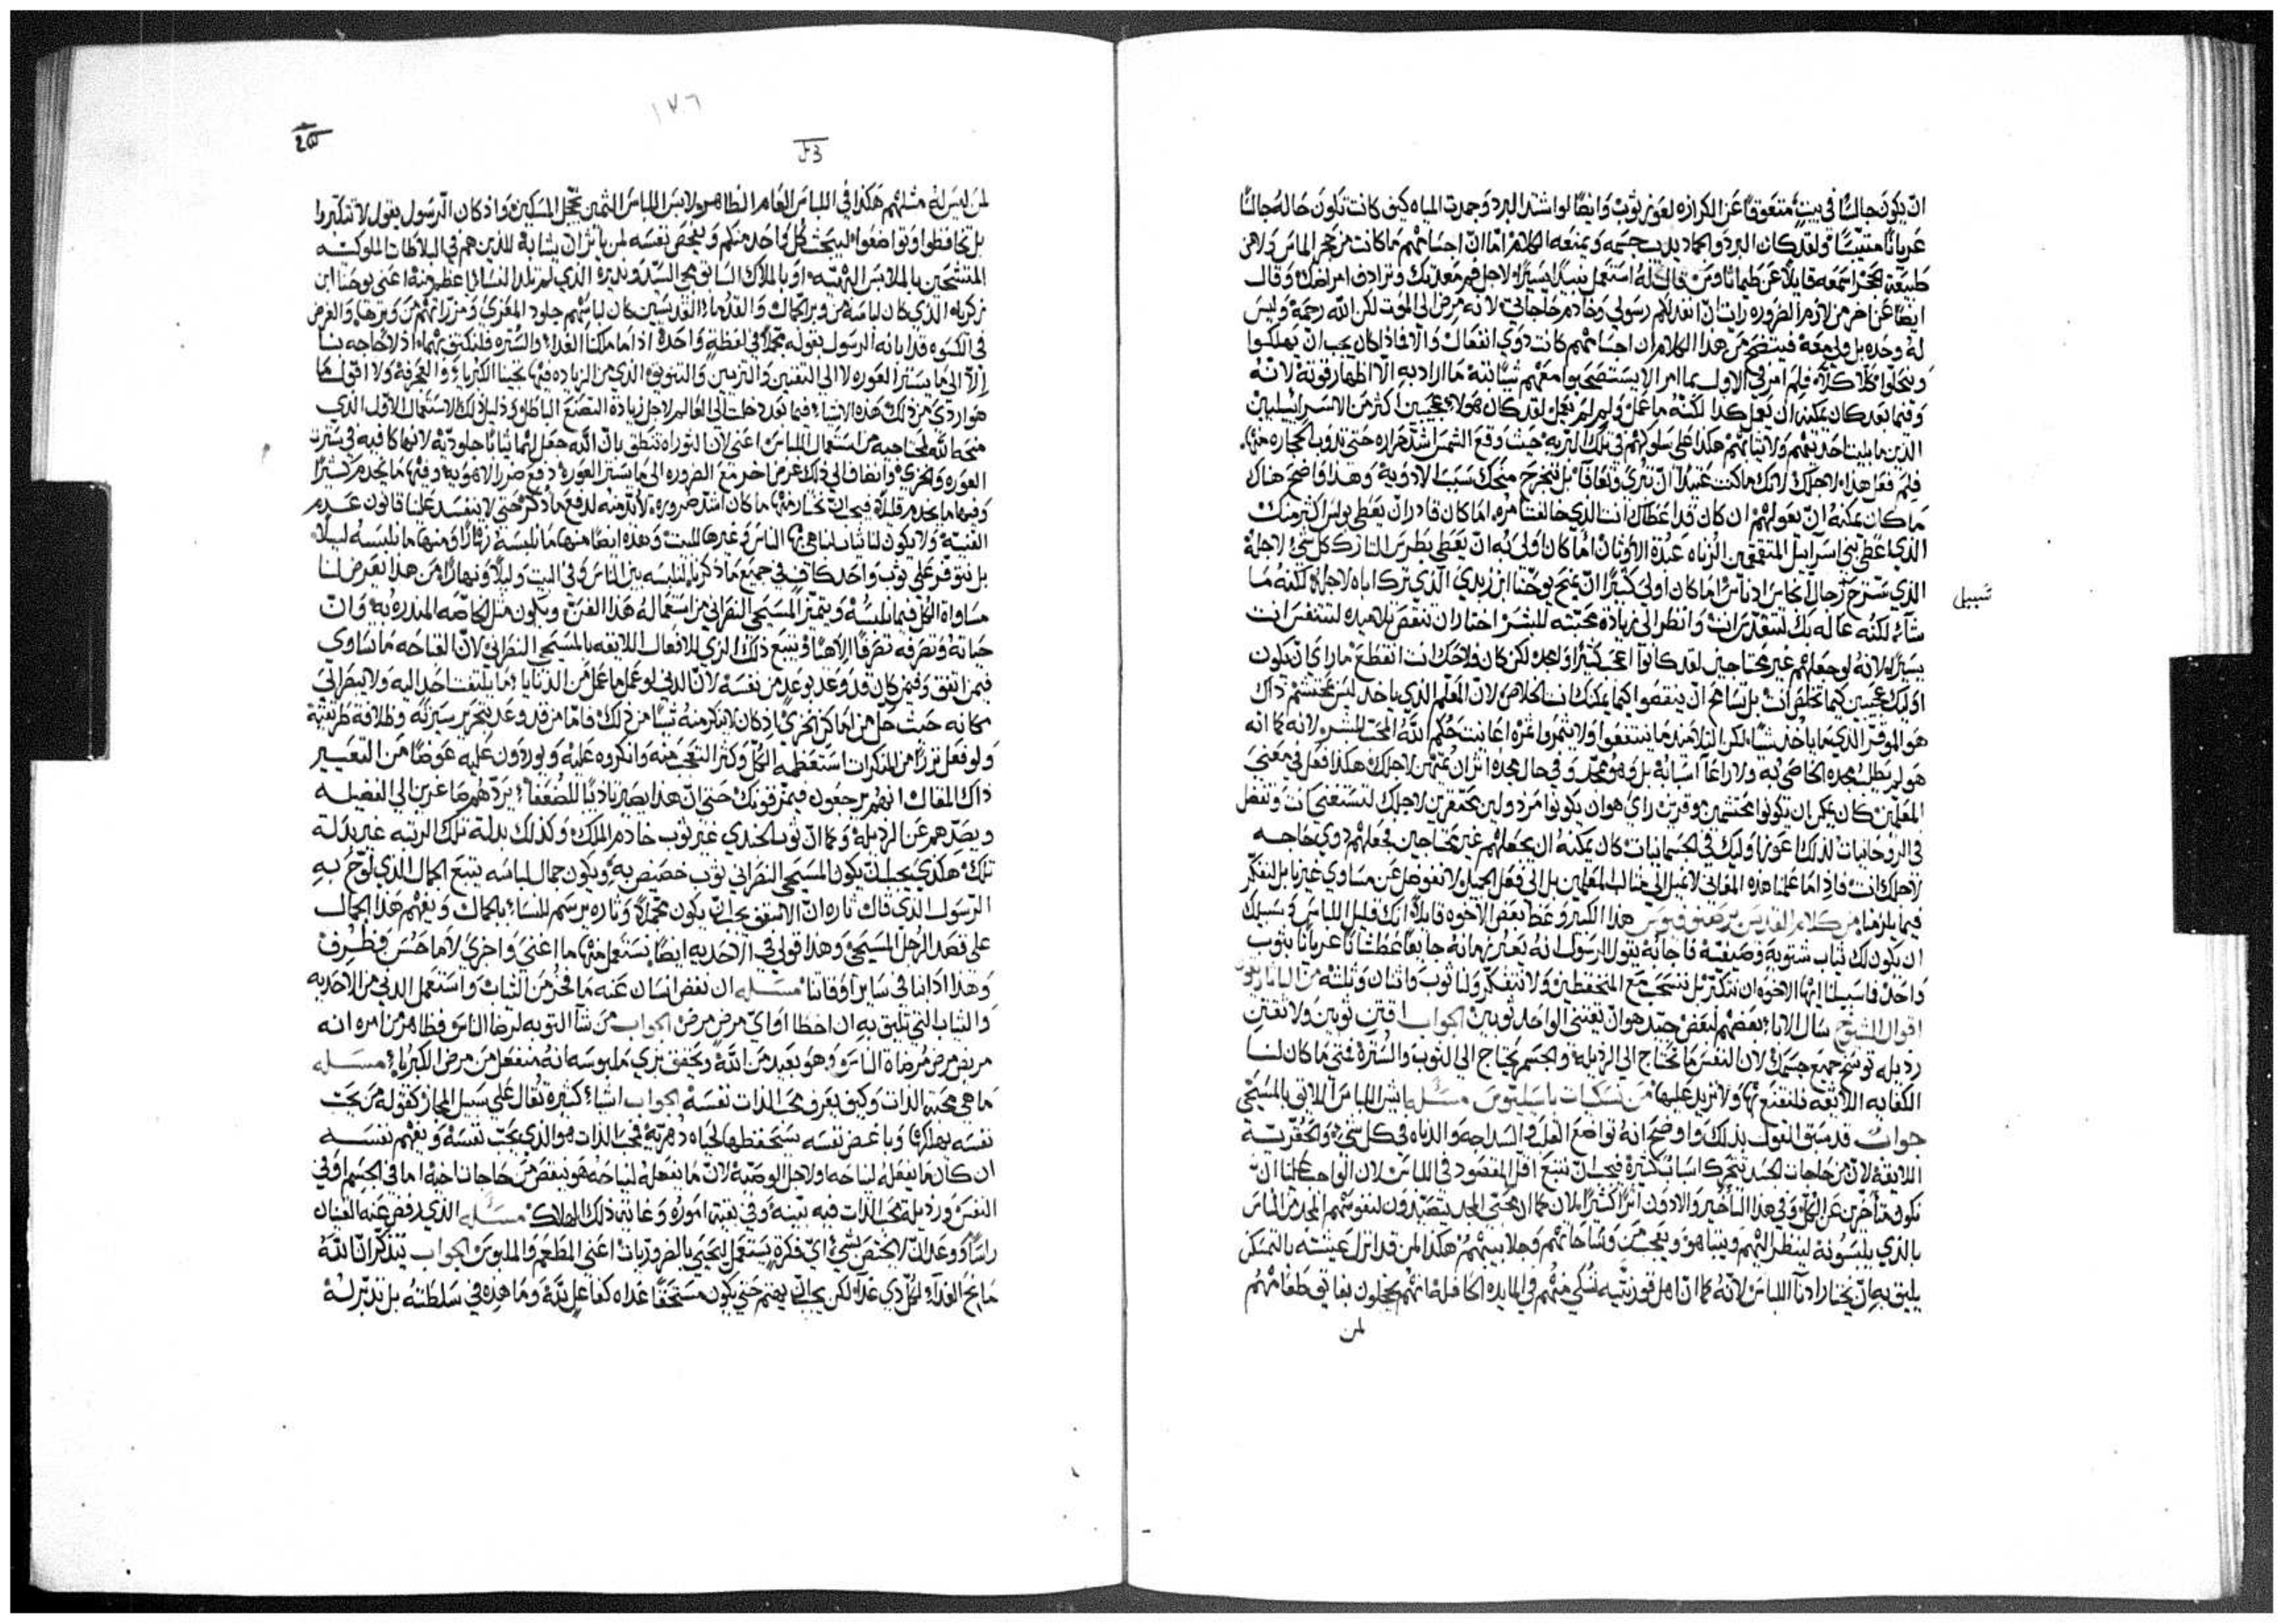 ان يكون جالسًا في بيتٍ متعوقًا عن الكرازه لعوز ثوب وايضًا لو اشتد البرد وجمدت المياه كيف كانت تكون حاله جالسًا
عريانًا متيبّسًا ولقد كان البرد والجماد يديب جسمه ويمنعه الكلام امّا انّ اجسامهم ما كانت من حجر الماس ولا من
طبيعة الحجر اسمعه قايلًا عن طيماثاوس استعمل نبيدًا يسيرًا لاجل فم معدتك وترادف امراضك وقال
ايضًا عن اخر من لازم الضروره رايت ان انفد لكم رسولي وخادم حاجاتي لانه مرض الى الموت لكن الله رحمه وليس
له وحده بل ولي معه فيتضح من هذا الكلام ان اجسامهم كانت دوي انفعال والا فاذا كان يجب ان يهلكوا
وينحلوا كلا كلا فلم امر في الاول بما امر الا يستصحبوا معهم شيًا البتة ما اراد به الا اظهار قوته لانه
وفيما بعد كان يمكنه ان يعمل كدا لكنه ما عمل ولم لم يفعل لقد كان هولاء عجيبين اكثر من الاسراييليين
الدين ما بليت احديتهم ولا ثيابهم هكدا على سلوكهم في تلك البريه حيث وقع الشمس اشد حراره حتى تدوب الحجاره منها
فلم فعل هدا لاجلك لانك ما كنت عتيدًا ان تبرى وتعافا بل تنجرح منحك سبب الادوية وهدا واضح هناك
ما كان يمكنه ان يعولهم ان كان قد اعطاك انت الذي خالفت امره اما كان قادر ان يعطي بولس اكثر منك
الذي اعطى بني اسراييل المتقمقمين الزناه عبدة الاوثان اما كان اولى به ان يعطي بطرس التارك كل شي لاجله
الذي سترح رجال انجاس ادناس اما كان اولى كثيرًا ان يمنح يوحنا ابن زبدي الذي ترك اباه لاجله لكنه ما
سبيل
شاء لكنه عاله بك لتتقدس انت وانظر الى زيادة محبته للبشر اختار ان تنقص تلاميده لتتنفس انت
يسيرًا لانه لو جعلهم غير محتاجين لقد كانوا اعجب كثيرًا وامجد لكن كان فلاحك انت انقطع ما راي ان يكون
اوليك عجيبين كيما تخلص انت بل تسامح ان ينقصوا كيما يمكنك انت الخلاص لان المعلم الذي ياخد ليس محتشم داك
هو الموقر الذي ما ياخد شيًا لكن التلاميد ما ينتفعوا ولا يثمروا ثمره اعاينت حكم الله المحب للبشر لانه كما انه
هو لم يطلب مجده الخاص به ولا راعا اسبابه بل وهو ممجد وفي حال مجده اثر ان يمتهن لاجلك هكدا فعل في معنى
المعلمين كان يمكن ان يكونوا محتشمين موقرين راي هو ان يكونوا مردولين محتقرين لاجلك لتستغني انت وتفضل
في الروحانيات لذلك اعوز اوليك في الجسمانيات كان يمكنه ان يجعلهم غير محتاجين فجعلهم دوي حاجه
لاجلك انت فاذ اما علمنا هده المعاني لا نميل الى مثالب المعلمين بل الى فعل الجميل ولا نفوض عن مساوي غيرنا بل نفكر
فيما يلزمنا من كلام القديس برصنوفيوس هدا الكبير وعظ بعض الاخوه قايلًا انك قليل اللباس وسبيلك
ان يكون لك ثياب شتويه وصيفيّه فاجابه يقول الرسول انه يعبر زمانه جايعًا عطشانًا عريانًا بثوب
واحد فاسبيلنا ايها الاخوه ان نتكبّر بل ننسحب مع المنخفضين ولا نتفكر ولنا ثوب واثنان وثلثه من البابا زينون
اقوال الشيوخ سال الابا بعضهم لبعض جيد هو ان يقتني الواحد ثوبين الجواب اقتن ثوبين ولا تقتن
رديله توسخ جميع جسمك لان النفس ما تحتاج الى الرديلة والجسم يحتاج الى الثوب والسترة فمتى ما كان لنا
الكفايه اللايقه فلنقتنع بها ولا نزيد عليها من نسكيات باسيليوس مسله ايش اللباس اللايق بالمسيحي
جوابٌ قد سبق القول بدلك واوضح انه تواضع القلب والسداجه والدناه في كل شي والحقريّة
اللايقه لان من حاجات الجسد تتحرك اسباب كثيرة فيجب ان نتبع اقل المقصود في اللباس لان الواجب علينا ان
نكون متأخرين عن الكل وفي هدا التاخير والادون اثرًا كثيرًا لان كما ان محبي المجد يتصيدون لنفوسهم المجد من الناس
بالذي يلبسونه لينظر اليهم ويتباهوا ويعجب من وشاحاتهم وجلابيبهم هكدا لمن قد انزل عيشته بالتمسكن
يليق به ان يختار ادنا اللباس لانه كما ان اهل قورنثيه تشكي منهم في المايده الحافله انهم يخجلون بفايق طعامهم
لمن
١٣٦
لمن ليس له مثلهم هكدا في اللباس العام الظاهر ولابس اللباس الثمين يخجل المسكين واذ كان الرسول يقول لا تتكبروا
بل تحافظوا وتواضعوا ليبحث كل واحد منكم ويفحص نفسه لمن ياثر ان يشابه للذين هم في البلاطات الملوكيّه
المتشحين بالملابس البهيّه او بالملاك السابق مجي السيد ونديره الذي لم تلد النسا اعظم منه اعني يوحنا ابن
زكريا الذي كان لباسه من وبر الجمال والقدما القديسين كان لباسهم جلود المعزي ومزراتهم من وبرها والغرض
في الكسوه قد ابانه الرسول بقوله مجملًا في لفظةٍ واحدة اذا ما ملكنا الغداء والستره فلنكتف بهما اذ لا حاجه بنا
إلّا الى ما يستر العوره لا الى التفنين والتزيين والتزويق الذي من الزياده فيها تجينا الكبرياء والعجرفه ولا اقول ما
هو اردى من ذلك هذه الاشياء فيما بعد دخلت الى العالم لاجل زيادة التصنع الباطل ودليل ذلك الاستعمال الاول الذي
منحه الله لمحتاجيه من استعمال اللباس اعني لان التوراه تنطق بان الله جعل لهما ثيابًا جلوديّه لانها كافيه في ستره
العوره والخزي وانضاف الى ذلك غرض اخر مع الضروره الى ما ستر العوره دفع ضرر الاهويه وفيها ما يخدم كثيرًا
وفيها ما يخدم قليلًا فيجب ان نختار منها ما كان اشد ضروره لا بد منه لدفع ما ذكر حتى لا ينفسد علينا قانون عدم
القنيه ولا يكون لنا ثياب لنباهي بها الناس وغيرها للبيت وبعده ايضًا منها ما نلبسه نهارًا ومنها ما نلبسه ليلًا
بل نتوفر على ثوب واحد كاف في جميع ما ذكر بان نلبسه بين الناس وفي البيت وليلًا ونهارًا من هذا يعرض لنا
مساواة الكل فيما نلبسه ويتميز المسيحي النصراني من استعماله هذا الفن ويكون مثل الخاصه المندره به وان
حياته وتصرفه تصرفًا الاهيًا ويتبع ذلك الزي للافعال اللايقه بالمسيحي النصراني لان القباحه ما تساوى
فيمن اتفق وفيمن كان قد وعد بوعد من نفسه لان الدني لو عمل ما عمل من الدنايا ما يلتفت احد اليه ولا ينظر الى
مكانه حيث حل من اماكن الخزي اذ كان لا ينكر منه شيًا من ذلك فامّا من قد وعد بتحرير سيرته وظلافه طريقته
ولو فعل نزرًا من المنكرات استفظعه الكل وكثر التعجب منه وانكروه عليه ويوردون عليه عوضًا من التعيير
ذاك المقال انهم يرجعون فيمزقونك حتى ان هذا يصير تاديبًا للضعفا يردهم صاغرين الى الفضيله
ويصدهم عن الرديله وكما ان ثوب الجندي غير ثوب خادم الملك وكذلك بدلة تلك الرتبه غير بدلة
تلك هكذى يجب ان يكون المسيحي النصراني ثوب خصيص به ويكون جمال لباسه يتبع الجمال الذي لوّح به
الرسول الذي قال تاره ان الاسقف يجب ان يكون متجملًا وتاره يرسم للنساء بالجمال ويفهم هذا الجمال
على قصد الرجل المسيحي وهذا قولي في الاحديه ايضًا يستعمل منها ما اغنى واجرى لا ما حسن وظرف
وهذا ادابنا في ساير اوقاتنا مسله ان نفض انسان عنه ما فخر من الثياب واستعمل الدني من الاحديه
والثياب التي تليق به ان اخطا او اي مرض مرض الجواب من شآ التوبه لرضا الناس فظاهر من امره انه
مريض مرض مرضاة الناس وهو بعيد من الله ويحقق بزي ملبوسه انه منفعل من مرض الكبرياء مسله
ما هي محبة الذات وكيف يعرف محب الذات نفسه الجواب اشياء كثيره تقال على سبيل المجاز كقوله من يحب
نفسه يهلكها وباغض نفسه يستحفظها لحياه دهريّه فمحب الذات هو الذي يحب نفسه ويفهم نفسه
ان كان ما يفعله لنياحه ولاجل الوصيّه لان ما يفعله لنياحه هو ينقص من حاجات اخيه اما في الجسم او في
النفس ورديلة محب الذات فيه بينه وفي بقية اموره وغاية ذلك الهلاك مسله الذي رفض عنه القنيان
راسًا ووعد ان لا يختص بشيء اي فكرة يستعمل ليحيى بالضروريات اعني المطعم والملبوس الجواب يتذكر ان الله
مانح الغداء لكل ذي غدآء لكن يجب ان يهتم حتى يكون مستحقًا غداه كفاعلٍ لله وما هذه في سلطته بل تدبر له